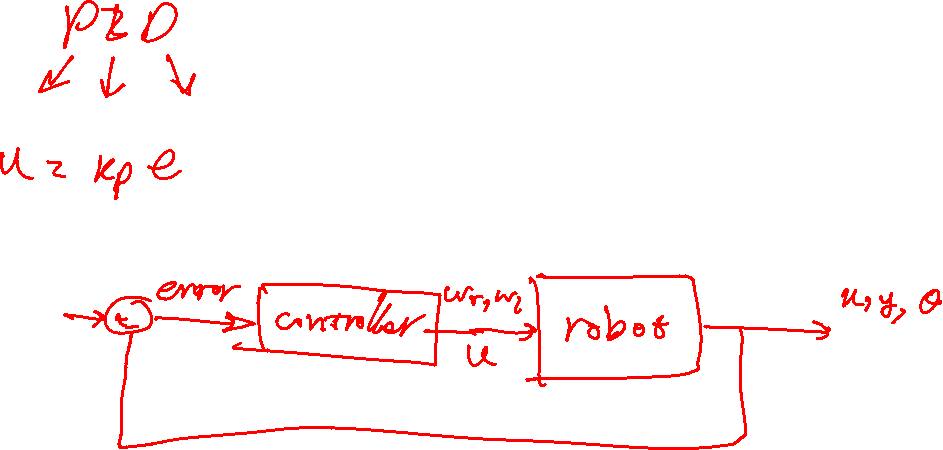 PID
u = kp e
error
controller
wr, wl
u
robot
x, y, θ